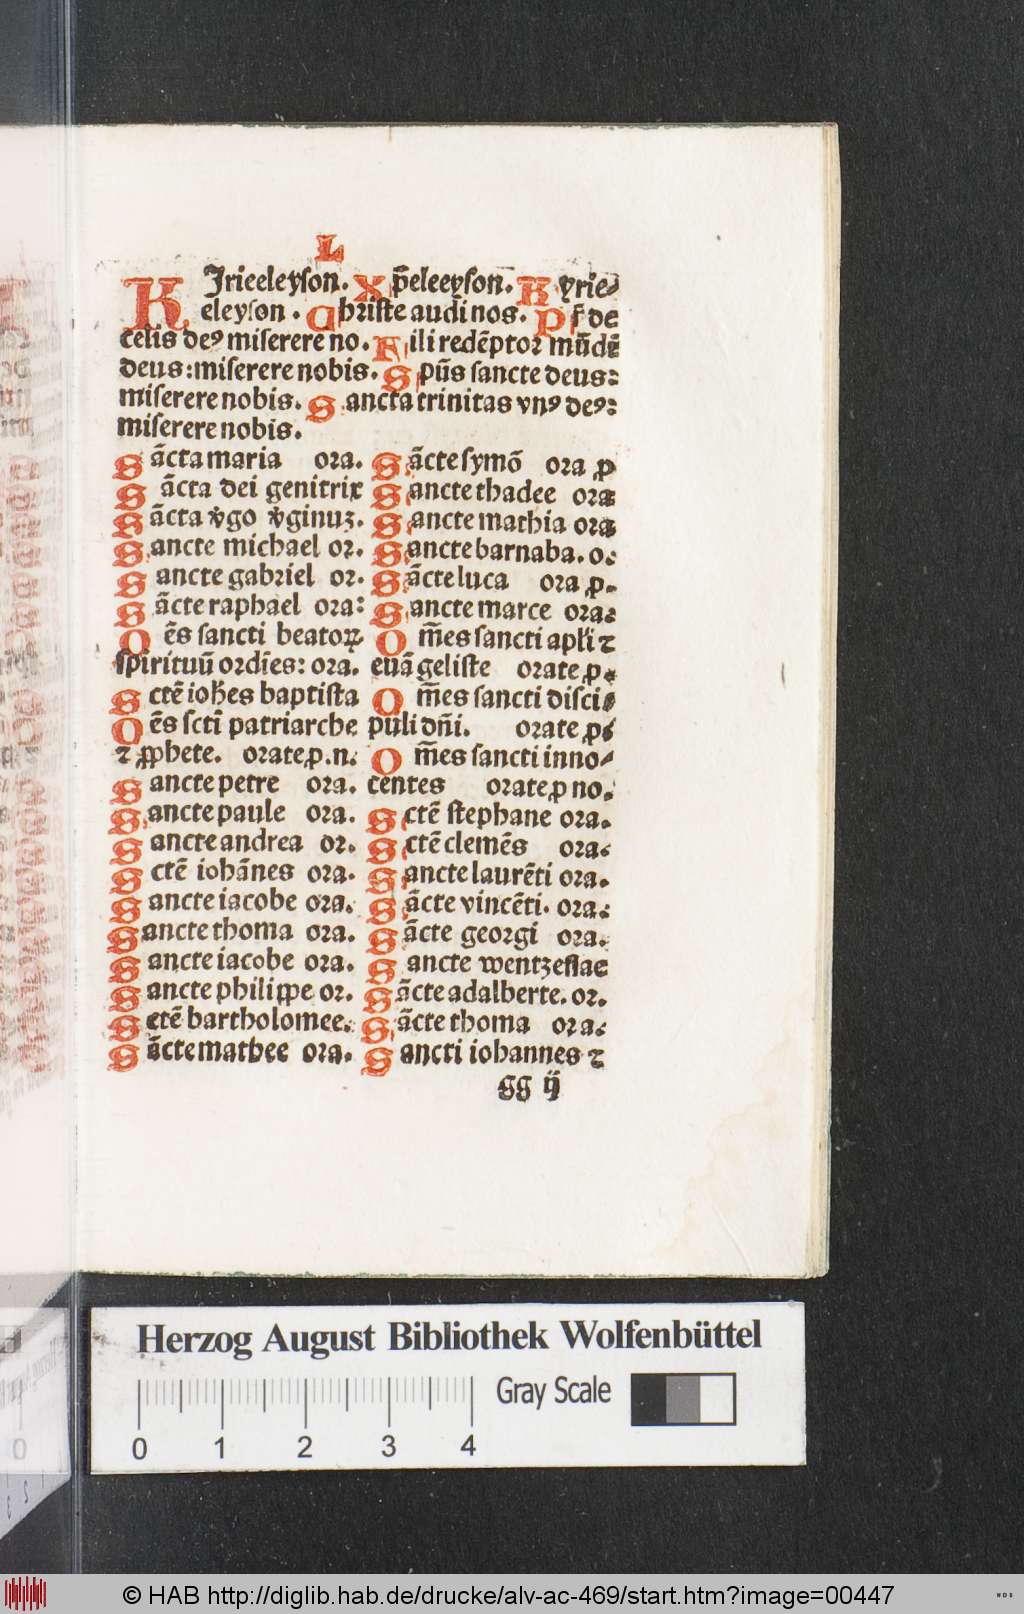 L
KJrieeleyson. Xp̄eleeyson. Kyrie⸗
eleyson. Christe audi nos. Pr̄ de
celis deꝰ miserere no. Fili redēptor mūdē
deus: miserere nobis. Spūs sancte deus:
miserere nobis. Sancta trinitas vnꝰ deꝰ:
miserere nobis.
Sācta maria ora.
Sācta dei genitrix
Sācta v̄go v̄ginuꝫ.
Sancte michael or.
Sancte gabriel or.
Sācte raphael ora:
Oēs sancti beatoꝝ
spirituū ordīes: ora.
Sctē ioh̄es baptista
Oēs sctī patriarche
⁊ ꝓphete. orate ꝓ.n.
Sancte petre ora.
Sancte paule ora.
Sancte andrea or.
Sctē iohānes ora.
Sancte iacobe ora.
Sancte thoma ora.
Sancte iacobe ora.
Sancte philippe or.
Sctē bartholomee.
Sācte mathee ora.
Sācte symō ora ꝓ
Sancte thadee ora
Sancte mathia ora
Sancte barnaba. o.
Sācte luca ora ꝓ.
Sancte marce ora.
Om̄es sancti apl̄i ⁊
euāgeliste orate ꝓ.
Om̄es sancti disci⸗
puli dn̄i. orate ꝓ⸗
Om̄es sancti inno⸗
centes orate ꝓ no.
Sctē stephane ora.
Sctē clemēs ora.
Sancte laurēti ora.
Sācte vincēti. ora.
Sācte georgi ora.
Sancte wentzeslae
Sācte adalberte. or.
Sācte thoma ora.
Sancti iohannes ⁊
gg ij
Herzog August Bibliothek Wolfenbüttel
Gray Scale
0 1 2 3 4
© HAB http://diglib.hab.de/drucke/alv-ac-469/start.htm?image=00447